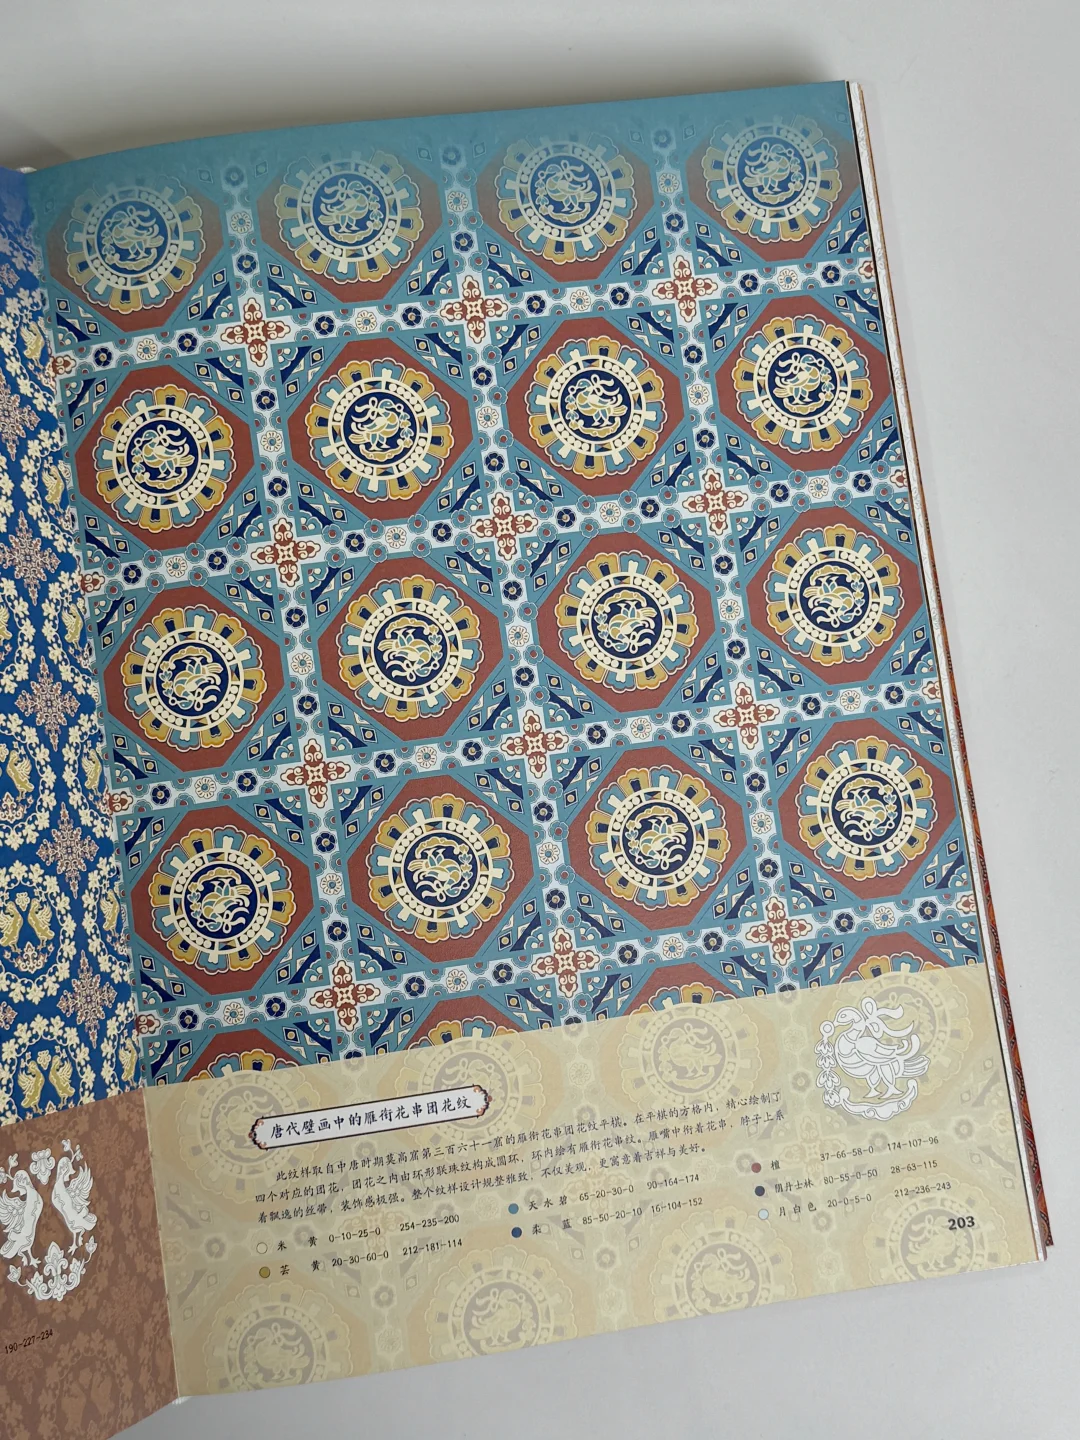 唐代壁画中的雁衔花串团花纹
此纹样取自中唐时期莫高窟第三百六十一窟的雁衔花串团花纹平棋。在平棋的方格内，精心绘制了
四个对应的团花，团花之内由环形联珠纹构成圆环，环内绘有雁衔花串纹。雁嘴中衔着花串，脖子上系
着飘逸的丝带，装饰感极强。整个纹样设计规整雅致，不仅美观，更寓意着吉祥与美好。
米黄 0-10-25-0 254-235-200
芸黄 20-30-60-0 212-181-114
天水碧 65-20-30-0 90-164-174
柔蓝 85-50-20-10 16-104-152
檀 37-66-58-0 174-107-96
阴丹士林 80-55-0-50 28-63-115
月白色 20-0-5-0 212-236-243
203
190-227-234